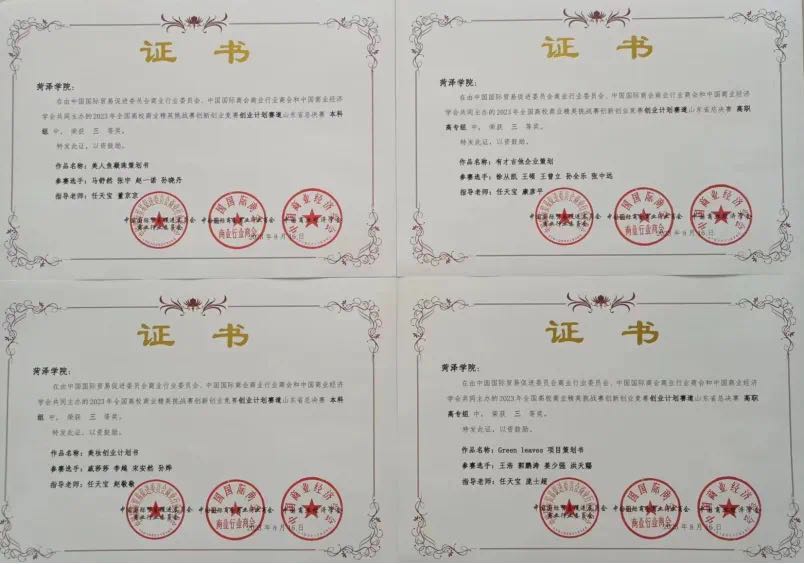 证 书
菏泽学院：
在由中国国际贸易促进委员会商业行业委员会、中国国际商会商业行业商会和中国商业经济
学会共同主办的2023年全国高校商业精英挑战赛创新创业竞赛创业计划赛道山东省总决赛 本科
组 中， 荣获 三 等奖。
特发此证，以资鼓励。
作品名称：美人鱼颐南策划书
参赛选手：马舒然 张宇 赵一诺 孙晓丹
指导老师：任天宝 董京京
中国国际贸易促进委员会
商业行业委员会
中国国际商会商业行业商会
中国商业经济学会
商业行业商会
2023年8月16日
证 书
菏泽学院：
在由中国国际贸易促进委员会商业行业委员会、中国国际商会商业行业商会和中国商业经济
学会共同主办的2023年全国高校商业精英挑战赛创新创业竞赛创业计划赛道山东省总决赛 高职
高专组 中， 荣获 三 等奖。
特发此证，以资鼓励。
作品名称：有才吉他企业策划
参赛选手：徐从凯 王顿 王曾立 孙会乐 张中远
指导老师：任天宝 康彦平
中国国际贸易促进委员会
商业行业委员会
中国国际商会商业行业商会
中国商业经济学会
商业行业商会
2023年8月16日
证 书
菏泽学院：
在由中国国际贸易促进委员会商业行业委员会、中国国际商会商业行业商会和中国商业经济
学会共同主办的2023年全国高校商业精英挑战赛创新创业竞赛创业计划赛道山东省总决赛 本科
组 中， 荣获 三 等奖。
特发此证，以资鼓励。
作品名称：美妆创业计划书
参赛选手：戚莎莎 李嫚 宋安然 孙烨
指导老师：任天宝 赵敬敬
中国国际贸易促进委员会
商业行业委员会
中国国际商会商业行业商会
中国商业经济学会
商业行业商会
2023年8月16日
证 书
菏泽学院：
在由中国国际贸易促进委员会商业行业委员会、中国国际商会商业行业商会和中国商业经济
学会共同主办的2023年全国高校商业精英挑战赛创新创业竞赛创业计划赛道山东省总决赛 高职
高专组 中， 荣获 三 等奖。
特发此证，以资鼓励。
作品名称：Green leaves 项目策划书
参赛选手：王浩 郭鹏涛 姜少强 洪天赐
指导老师：任天宝 庞士超
中国国际贸易促进委员会
商业行业委员会
中国国际商会商业行业商会
中国商业经济学会
商业行业商会
2023年8月16日